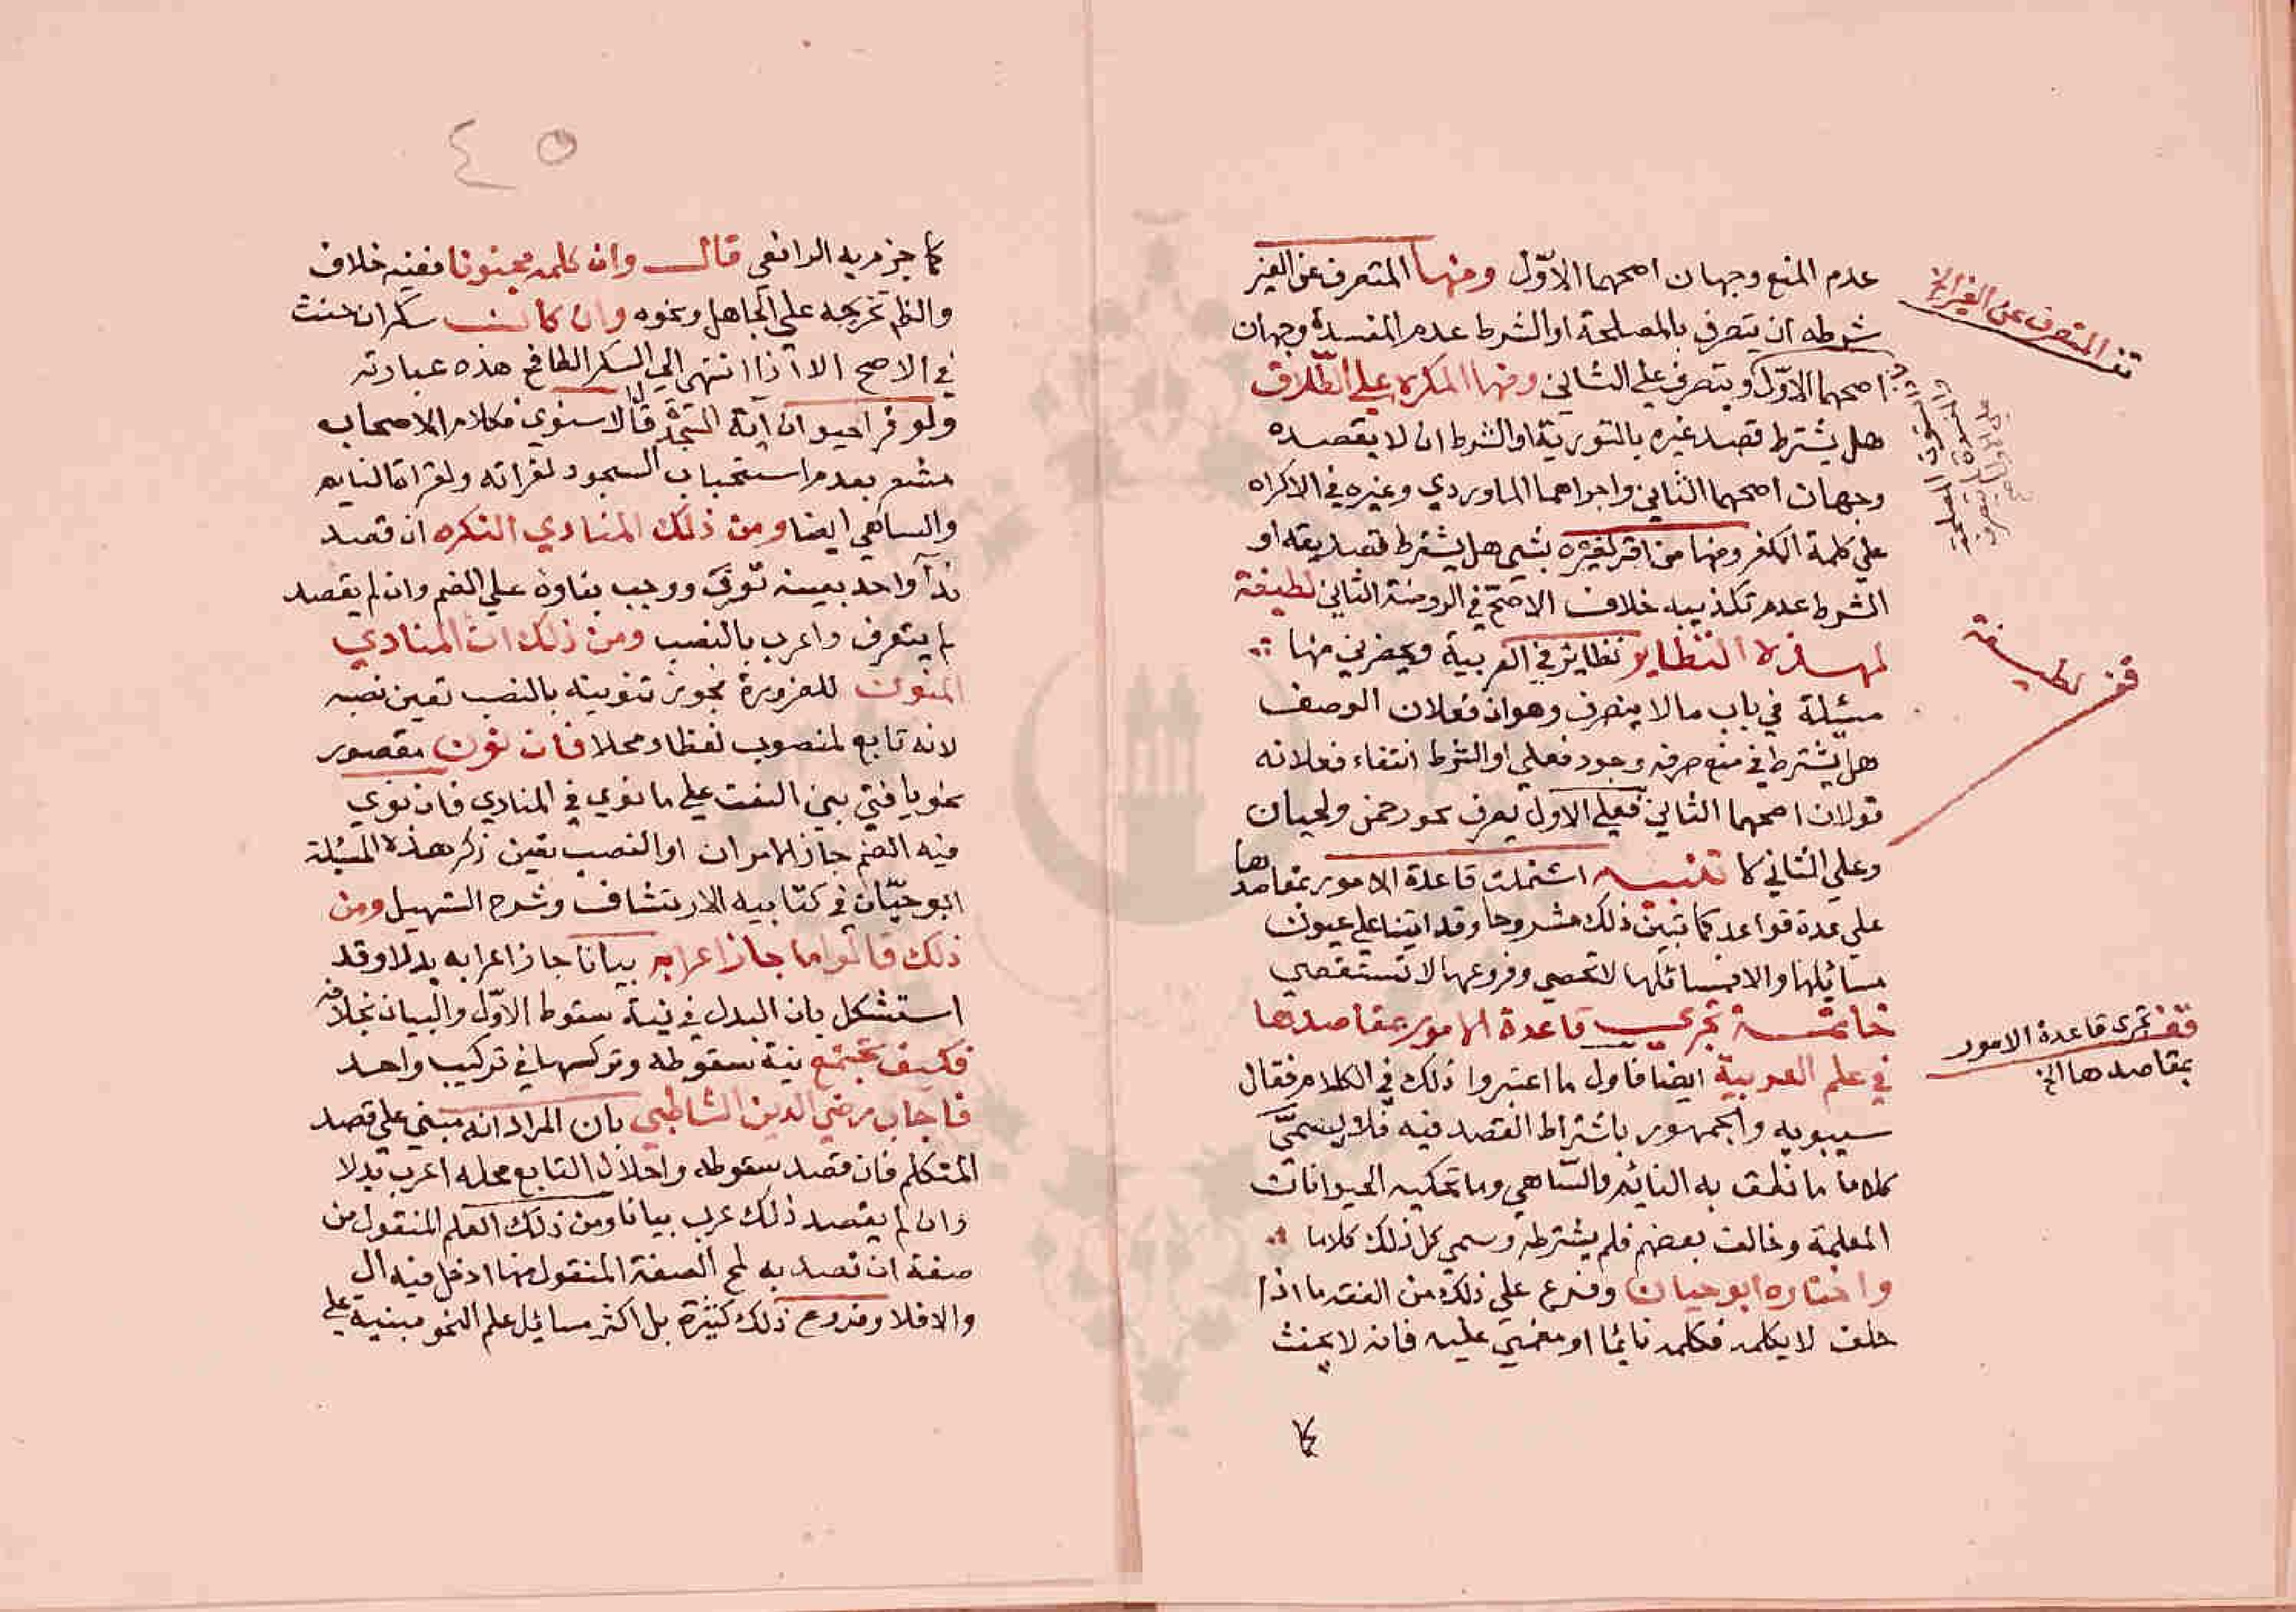 عدم المنع وجهان اصحهما الاوّل ومنها المتصرف عن الغير
شرطه ان يتصرف بالمصلحة او الشرط عدم المفسدة وجهان
اصحهما الاوّل ويتصرف على الثاني ومنها المكره على الطّلاق
هل يشترط قصد غيره بالتورية او الشرط ان لا يقصده
وجهان اصحهما الثاني واجراهما الماوردي وغيره في الاكراه
على كلمة الكفر ومنها من اقر لغيره بشي هل يشترط تصديقه او
الشرط عدم تكذيبه خلاف الاصح في الروضة الثاني لطيفة
لهذه النظاير نظاير في العربية ويحضرني منها
مسئلة في باب مالا ينصرف وهو ان فعلان الوصف
هل يشترط في منع صرفه وجود فعلى او الشرط انتفاء فعلانه
قولان اصحهما الثاني فعلى الاول يصرف نحو رحمن ولحيان
وعلى الثاني كا تنبيه اشتملت قاعدة الامور بمقاصدها
على عدة قواعد كما تبين ذلك مشروحا وقد اتينا على عيون
مسائلها والا فمسائلها لا تحصي وفروعها لا تستقصي
خاتمة تجري قاعدة الامور بمقاصدها
في علم العربية ايضا فاول ما اعتبروا ذلك في الكلام فقال
سيبويه والجمهور باشتراط القصد فيه فلا يسمّى
كلاما ما نطق به النائم والسّاهي وما تحكيه الحيوانات
المعلمة وخالف بعضهم فلم يشترطه وسمي كل ذلك كلاما
واختاره ابو حيان وفرع على ذلك من الفقه ما اذا
حلف لا يكلمه فكلمه نائما او مغمي عليه فانه لا يحنث
كما
قف المتصرف عن الغير الخ
قف لطيفة
قف تجرى قاعدة الامور
بمقاصدها الخ
٤٥
كما جزم به الرافعي قال وان كلمه مجنونا ففيه خلاف
والظ تخريجه على الجاهل ونحوه وان كانت سكران حنث
في الاصح الا اذا انتهى الي السكر الطافح هذه عبارته
ولو قرا حيوان آية السجدة قال الاسنوي فكلام الاصحاب
مشعر بعدم استحباب السجود لقراته ولقراة النايم
والساهي ايضا ومن ذلك المنادي النكره ان قصد
ندآ واحد بعينه تعرف ووجب بناوه على الضم وان لم يقصد
لم يتعرف واعرب بالنصب ومن ذلك ان المنادي
المنون للضرورة يجوز تنوينه بالنصب تعين نصبه
لانه تابع لمنصوب لفظا ومحلا فان نون مقصور
نحو يا فتي بني النعت على ما نوي في المنادي فان نوي
فيه الضم جاز الامران او النصب تعين ذكر هذه المسئلة
ابو حيّان في كتابيه الارتشاف وشرح التسهيل ومن
ذلك قالوا ما جاز اعرابه بيانا جاز اعرابه بدلا وقد
استشكل بان البدل في نية سقوط الاوّل والبيان بخلافه
فكيف تجتمع نية سقوطه وتركها في تركيب واحد
فاجاب رضي الدين الشاطبي بان المراد انه مبني على قصد
المتكلم فان قصد سقوطه واحلال التابع محله اعرب بدلا
وان لم يقصد ذلك عرب بيانا ومن ذلك العلم المنقول من
صفة ان قصد به لمح الصفة المنقول منها ادخل فيه ال
والا فلا وفروع ذلك كثيرة بل اكثر مسائل علم النحو مبنية على